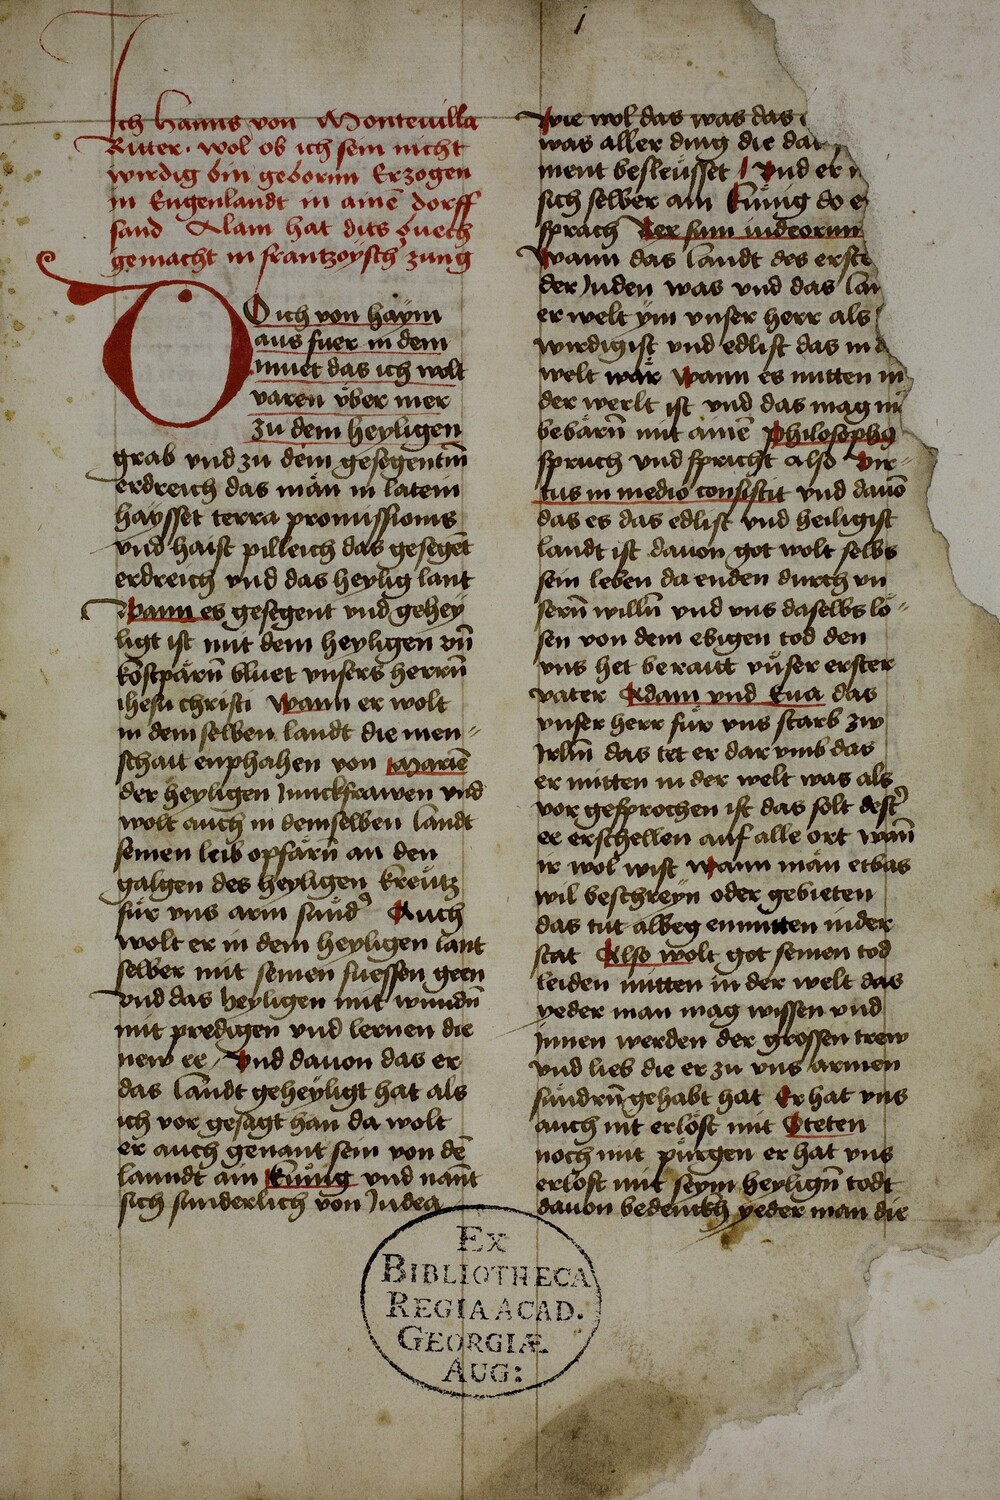 j
Ich hanns von Monteuilla
Ritter · wol ob ich sein nicht
wirdig bin gebornn Erzogen
in Engenlandt in ainē dorff
sand Alam hat dits puech
gemacht in frantzoÿsch zung
Do ich von haÿm
aus fuer in dem
muet das ich wolt
varen vͤber mer
zu dem heyligen
grab vnd zu dem gesegentm̄
erdreich das man in latein
haysset terra promissionis
vnd haist pilleich das gesegēt
erdreich vnd das heylig lant
Wann es gesegent vnd gehey
ligt ist mit dem heyligen vn̄
kostpärn̄ bluet vnsers herrn̄
ihesu christi Wann er wolt
in dem selben landt die men⸗
schait enphahen von Mariē
der heyligen Junckfrawen vnd
wolt auch in demselben landt
seinen leib opfärn̄ an den
galgen des heyligen kreutz
fuͤr vns arm suͤnd⁹ Auch
wolt er in dem heyligen lant
selber mit seinen fuessen geen
vnd das heyligen mit wundn̄
mit predigen vnd lernen die
new ee / Vnd dauon das er
das landt geheyligt hat als
ich vor gesagt han da wolt
er auch genant sein von dē
lanndt ain kunig vnd nān̄t
sich sunderlich von Judea
Wie wol das was das
was aller ding die da
ment besleusset / Vnd er
sich selber ain kunig do
sprach Rer sum iudeorum
Wann das landt des erste
der Juden was vnd das lan
er welt ym vnser herr als
wirdigist vnd edlist das in d
welt wär Wann es mitten in
der werlt ist vnd das mag m
bebärn̄ mit ainē philosophÿ
spruch vnd spricht also Vir⸗
tus in medio consistit vnd dauō
das es das edlist vnd heiligist
landt ist dauon got wolt selbs
sein leben da enden durch vn
sern̄ willn̄ vnd vns daselbs lö⸗
sen von dem ebigen tod den
vns het beraitt vnser erster
vater Adam vnd Eua das
vnser herr fuͤr vns starb zw
Jrlm̄ das tet er dar vmb das
er mitten in der welt was als
vor gesprochen ist das solt dest⁹
ee erschellen auf alle ort wan̄
ir wol wist wann man etbas
wil beschreyn oder gebieten
das tut albeg enmitten in der
stat Also wolt got seinen tod
leiden mitten in der welt das
yeder man mag wissen vnd
Jnnen werden der grossen trew
vnd lieb die er zu vns armen
suͤndrn̄ gehabt hat Er hat vns
auch nit erlöst mit Steten
noch mit puͤrgen er hat vns
erlöst mit seym heylign̄ todt
dauon bedenckh yeder man die
EX
BIBLIOTHECA
REGIA ACAD.
GEORGIÆ
AUG: